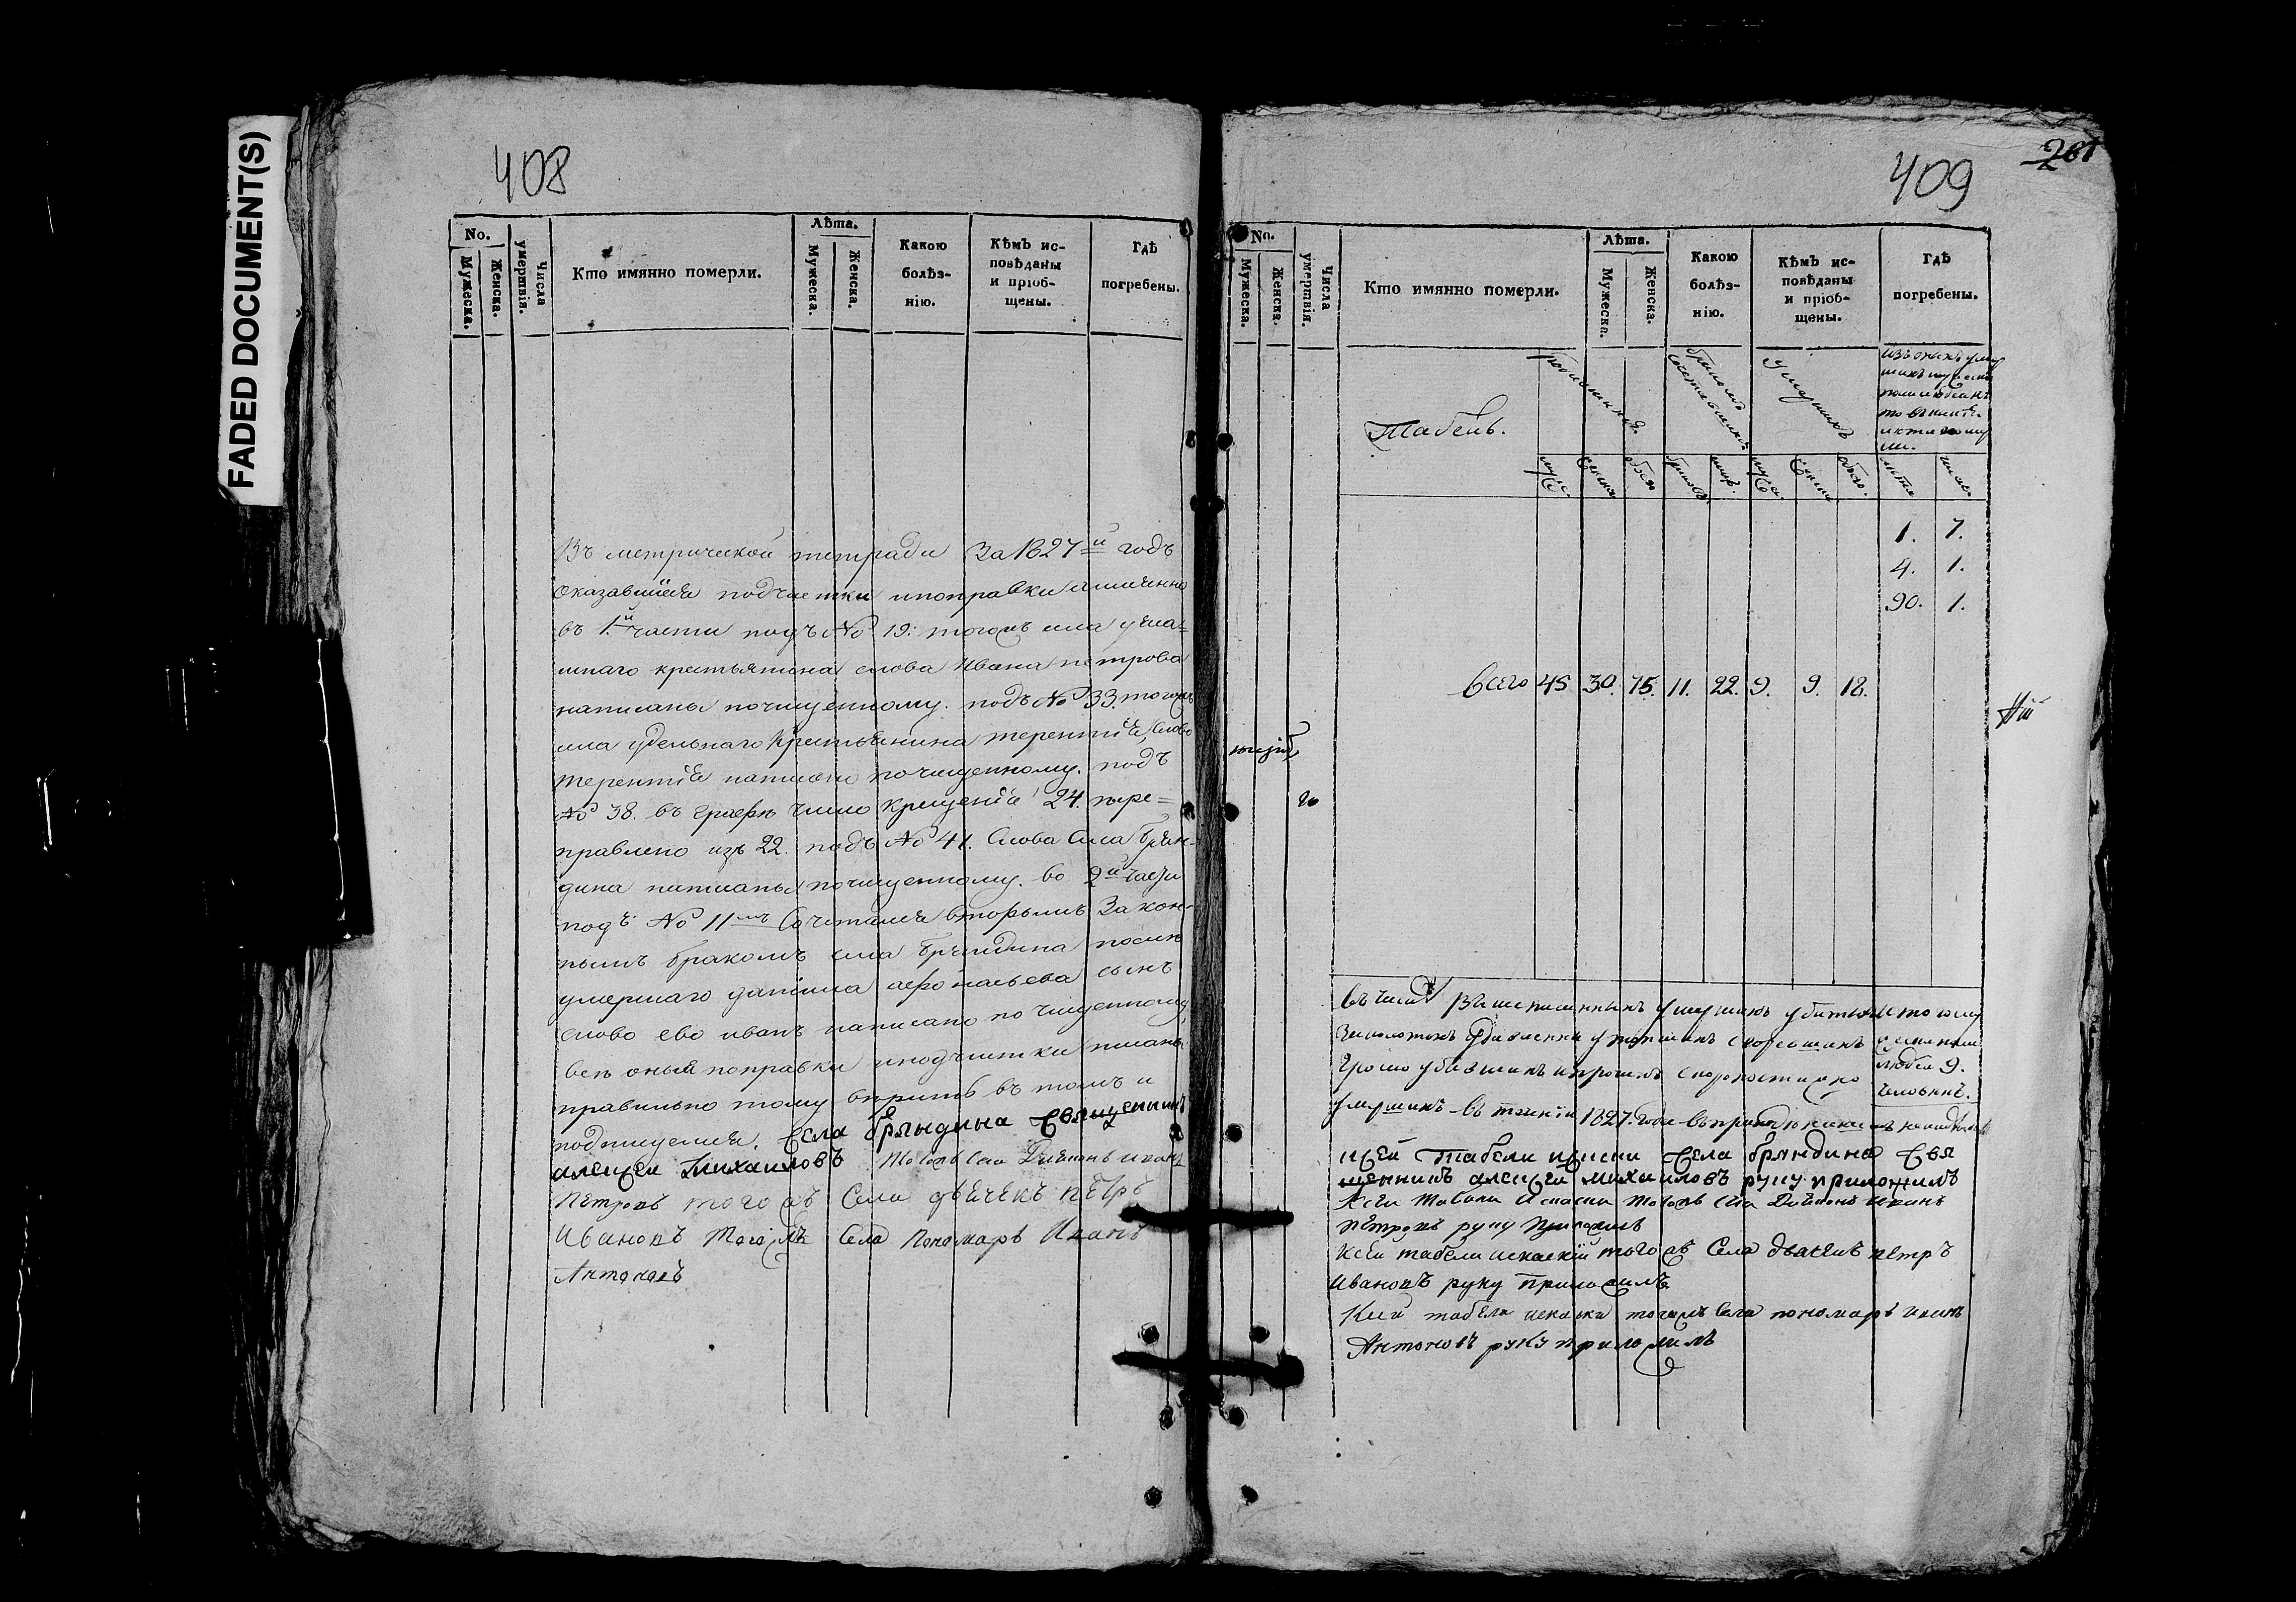 FADED DOCUMENT(S)
408
No.
Мужеска.
Женска.
Числа умертвія.
Кто имянно померли.
Лѣта.
Мужеска.
Женска.
Какою болѣз-
нію.
Кѣмъ ис-
повѣданы
и пріоб-
щены.
Гдѣ
погребены.
Въ метрической тетради За 1827й годъ
оказавшіеся подчистки и поправки а именно
въ 1й части подъ № 19: тогожъ села
крестьянина слова Ивана петрова
написаны почищенному. подъ № 33. тогожъ
села удельнаго крестьянина терентія, слово
терентія написано почищенному. подъ
№ 38. въ графѣ число крещенія 24. пере=
правлено изъ 22. подъ № 41. Слова Села Брян-
дина написаны почищенному. во 2й части
подъ № 11мъ Сочетался вторымъ Закон-
нымъ бракомъ села Бряндина послѣ
умершаго данила афонасьева сынъ
слово ево иванъ написано по чищенному,
всѣ оныя поправки и подчистки писаны
правильно тому вѣрить въ томъ и
подписуемся. Села бряндина Священникъ
алеѯеи Михаиловъ Тогожъ Села Дияконъ иванъ
Петровъ того жъ Села дьячекъ пётръ
Ивановъ Того жъ Села Пономарь Иванъ
Антоновъ
409
261
No.
Мужеска.
Женска.
Числа умертвія.
Кто имянно померли.
Лѣта.
Мужеска.
Женска.
Какою
болѣз-
нію.
Кѣмъ ис-
повѣданы
и пріоб-
щены.
Гдѣ
погребены.
Табель.
Родившихся.
бракомъ сочетавшихся
Умершихъ
1. 7.
4. 1.
90. 1.
Всего 45 30. 75. 11. 22. 9. 9. 18.
въ числѣ вышеписанныхъ умершихъ убитыхъ
утопшихъ сгоревшихъ
Громо убившихъ и прочихъ скоропостижно
умершихъ въ теченіи 1827. года въ приходѣ
ксей Табели Села бряндина Свя
щенникъ алеѯеи михаиловъ руку приложилъ
Ксей Табели тогожъ села Дияконъ иванъ
петровъ руку приложилъ
Ксей табели того жъ Села дьячекъ петръ
Ивановъ руку приложилъ
Ксей табели тогожъ Села пономарь иванъ
Антоновъ руку приложилъ